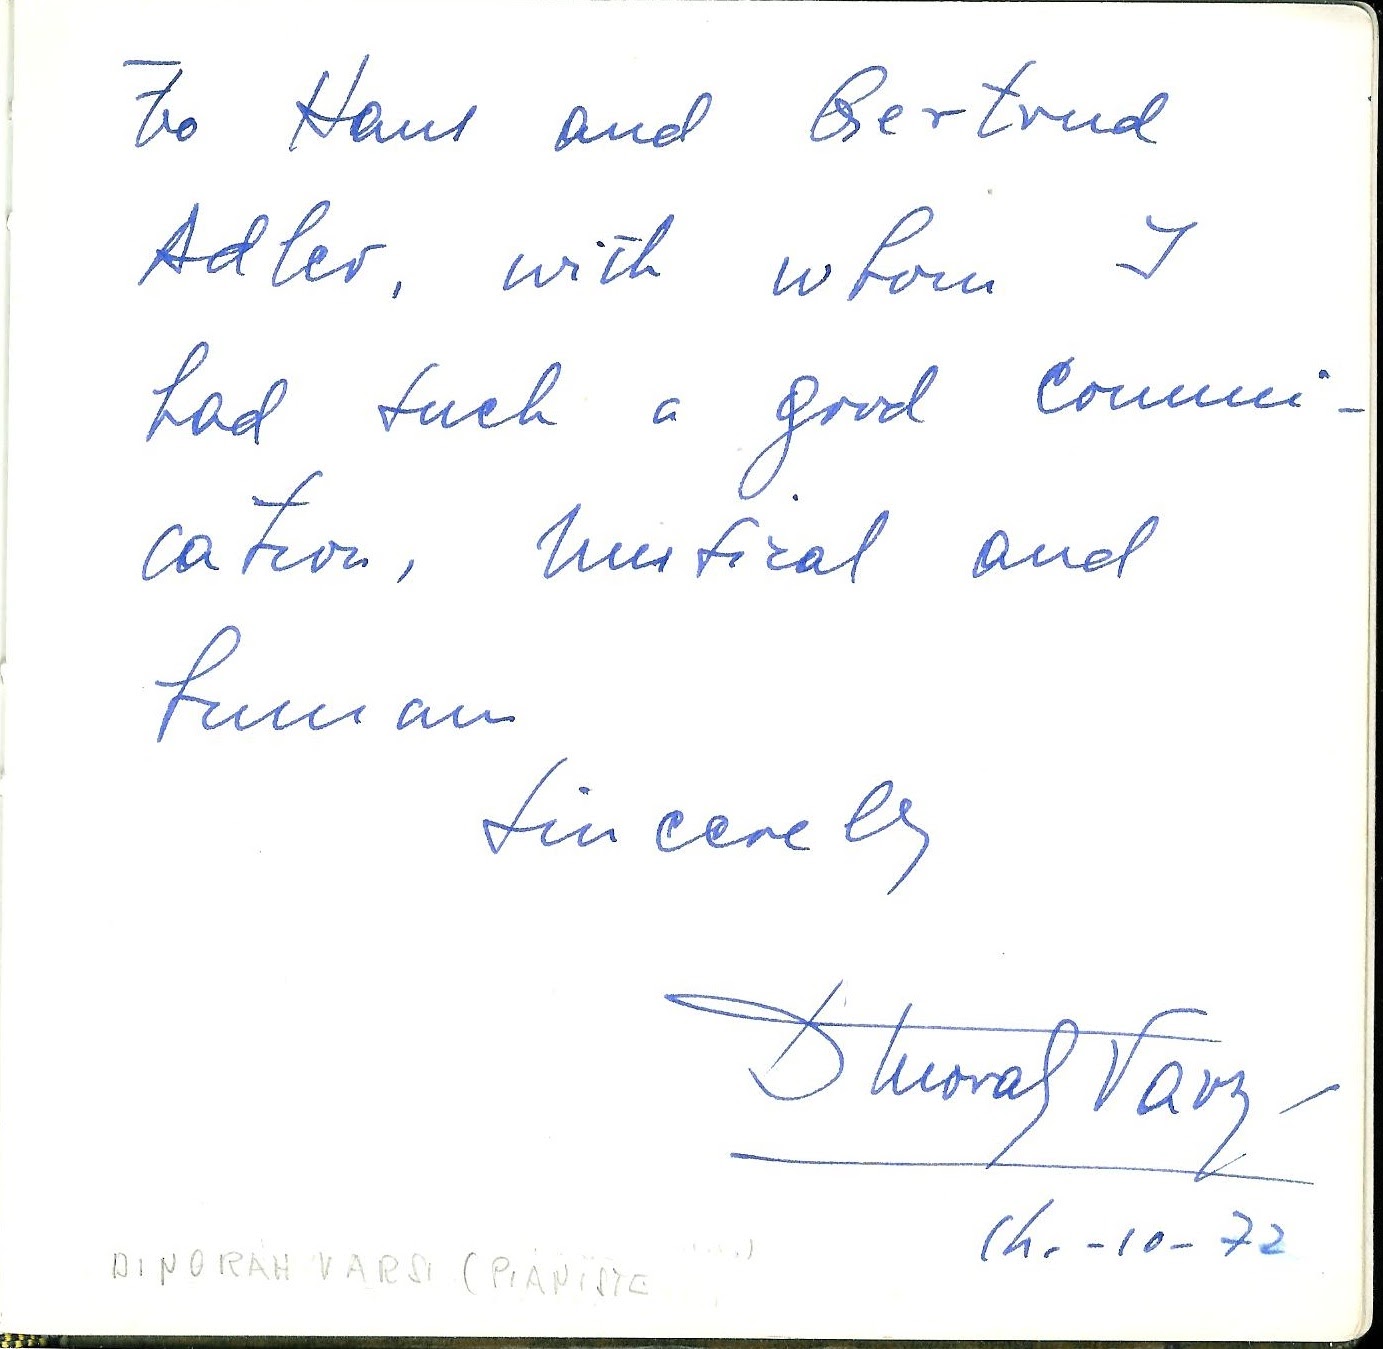 To Hans and Gertrud
Adler, with whom I
had such a good communi-
cation, musical and
human
Sincerely
Dinorah Varsi
-10-72
DINORAH VARSI (PIANISTE